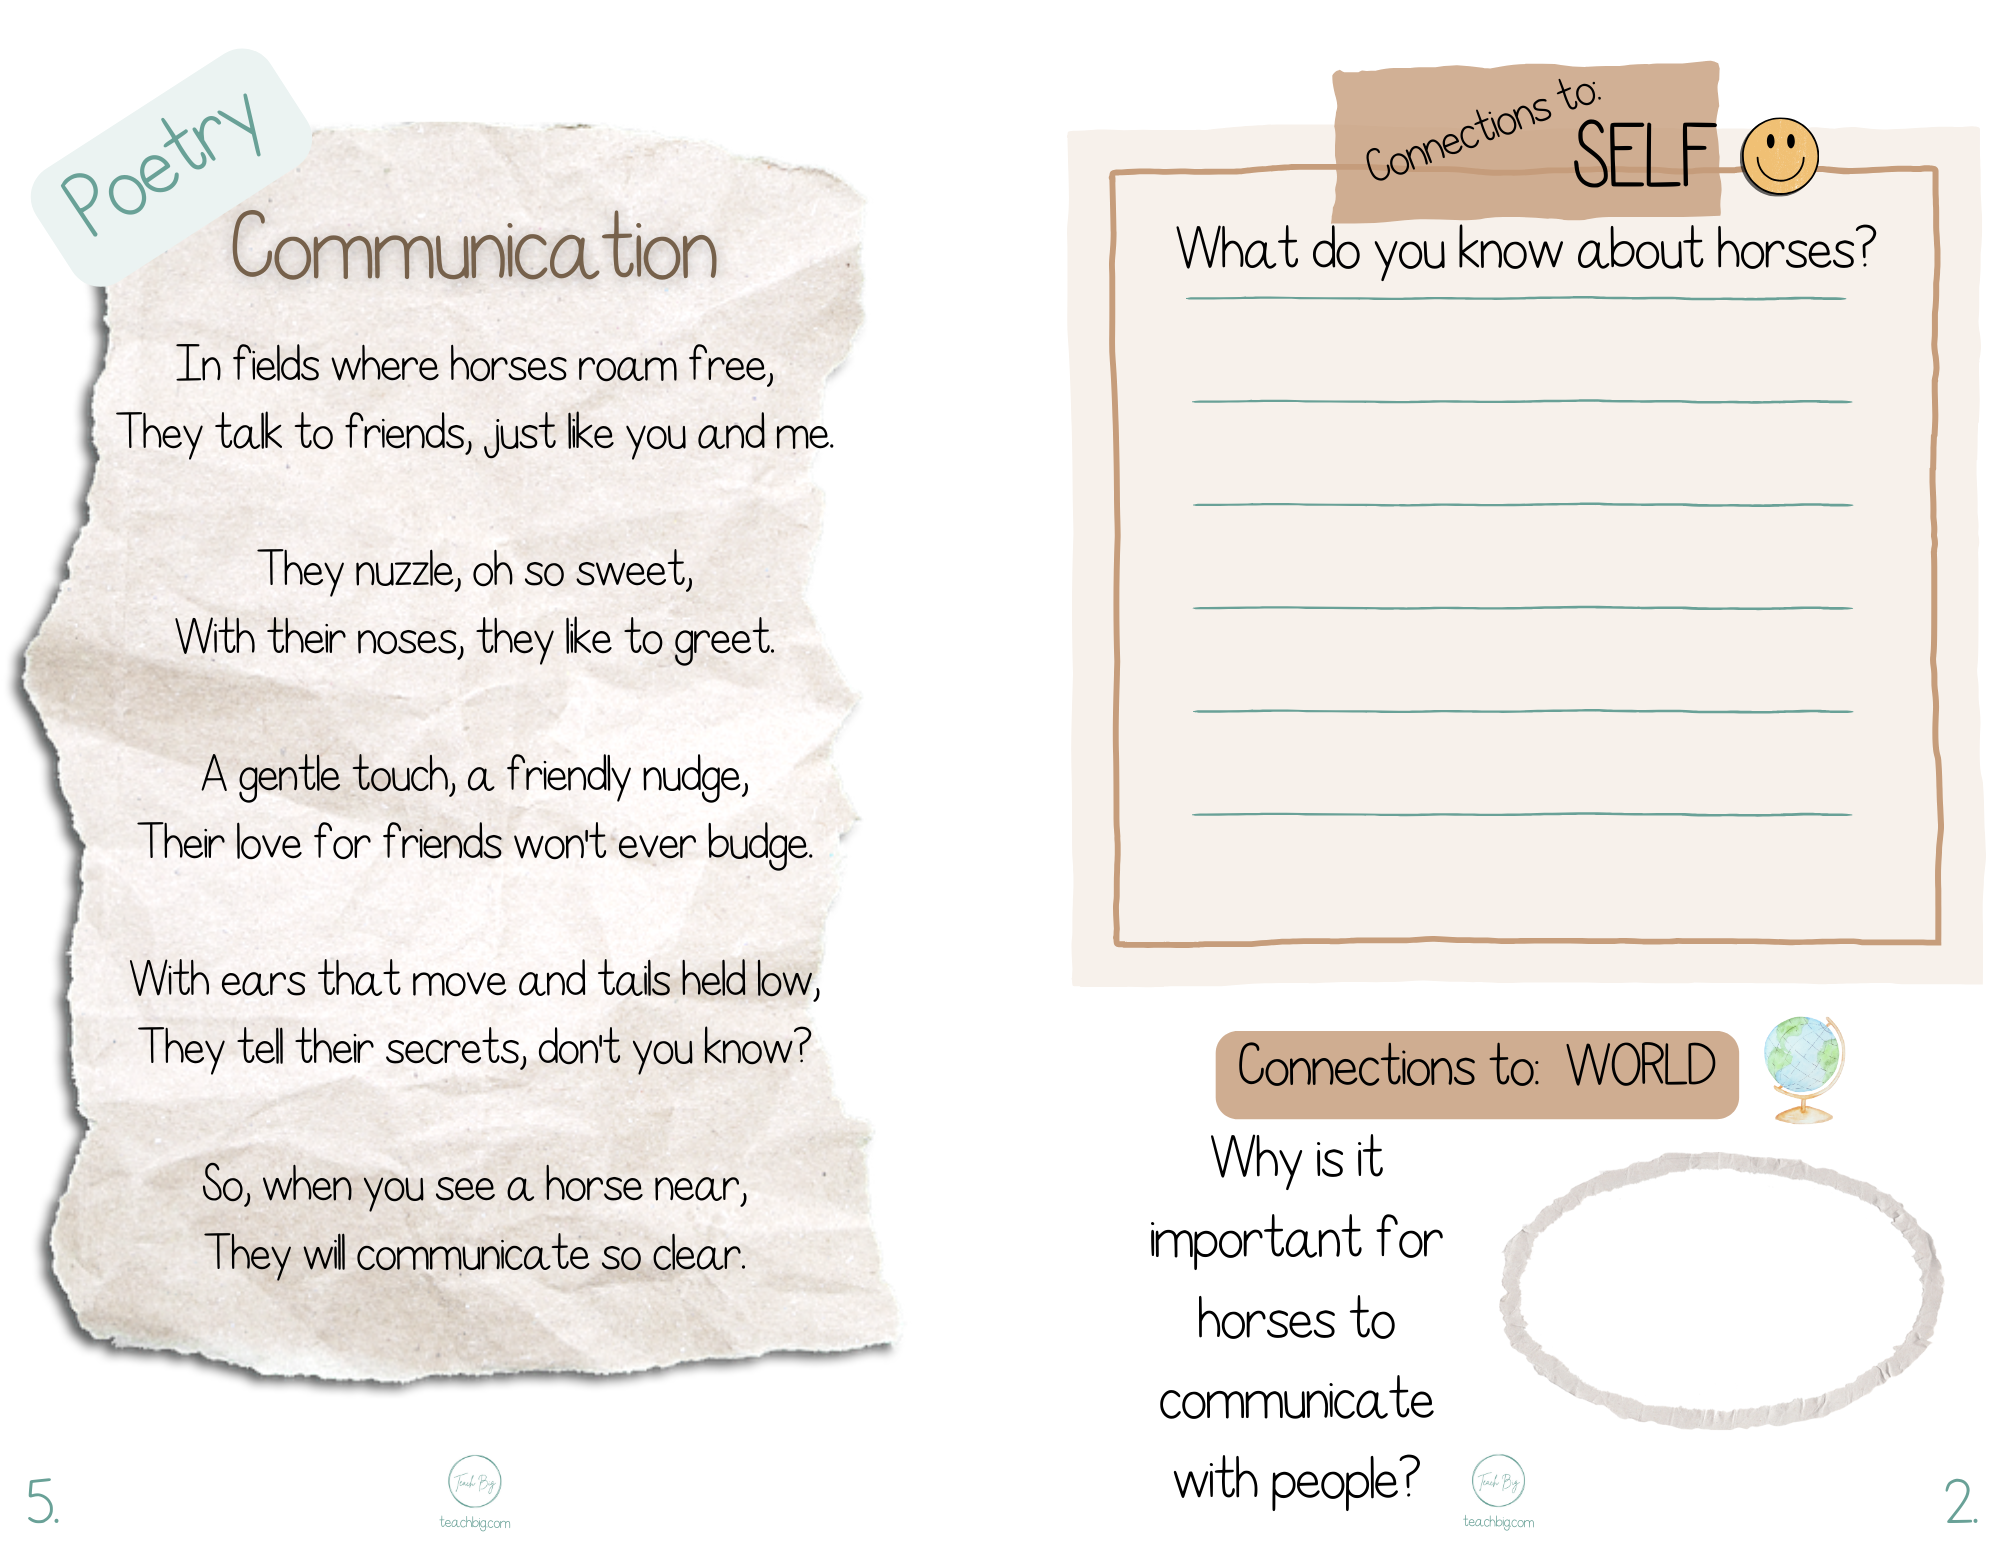 Poetry
Communication
In fields where horses roam free,
They talk to friends, just like you and me.
They nuzzle, oh so sweet,
With their noses, they like to greet.
A gentle touch, a friendly nudge,
Their love for friends won't ever budge.
With ears that move and tails held low,
They tell their secrets, don't you know?
So, when you see a horse near,
They will communicate so clear.
5.
Teach Big
teachbig.com
Connections to:
SELF
What do you know about horses?
Connections to: WORLD
Why is it
important for
horses to
communicate
with people?
Teach Big
teachbig.com
2.